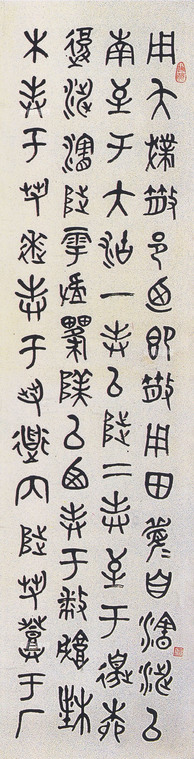 用夨撲散邑迺即散用田眉自瀗涉以
南至于大沽一奉以陟二奉至于邊柳
復涉瀗陟雩以西奉于敝城楮
木奉于芻逨奉于芻道內陟芻登于厂